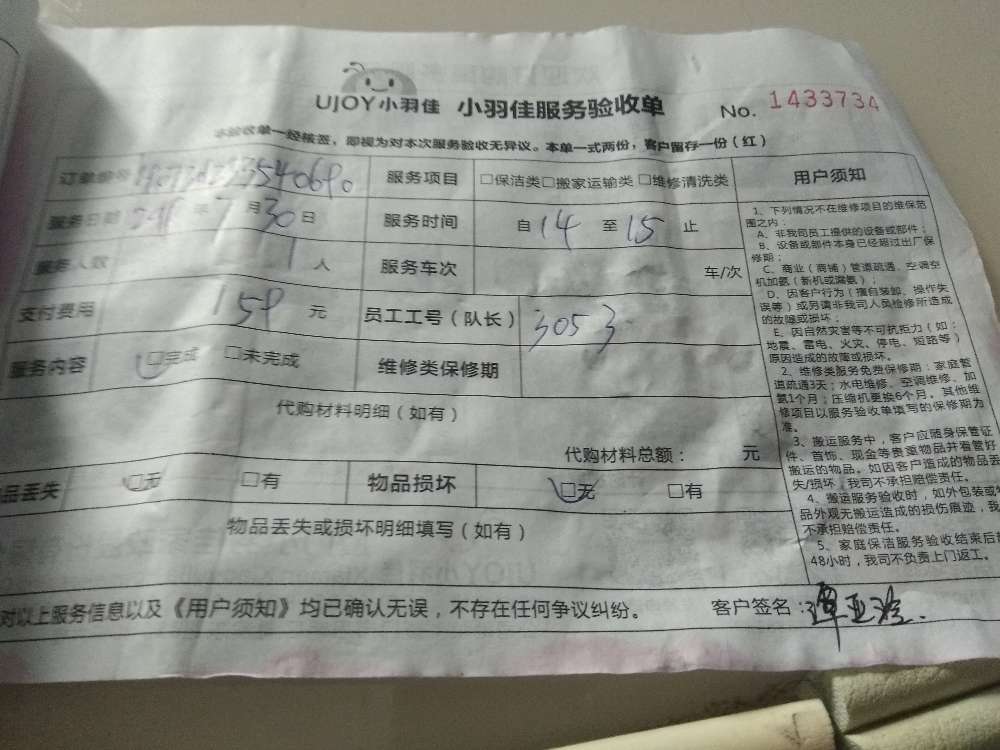 UJOY小羽佳 小羽佳服务验收单 No. 1433734
本验收单一经核签，即视为对本次服务验收无异议。本单一式两份，客户留存一份（红）
订单编号 服务项目 □保洁类□搬家运输类□维修清洗类
服务日期 年7月30日 服务时间 自14至15止
服务人数 1人 服务车次 车/次
支付费用 159元 员工工号（队长） 3053
服务内容 □完成 □未完成 维修类保修期
代购材料明细（如有）
代购材料总额： 元
品丢失 □无 □有 物品损坏 □无 □有
物品丢失或损坏明细填写（如有）
对以上服务信息以及《用户须知》均已确认无误，不存在任何争议纠纷。 客户签名：
用户须知
1、下列情况不在维修项目的维保范
围之内：
A、非我司员工提供的设备或部件；
B、设备或部件本身已经超过出厂保
修期；
C、商业（商铺）管道疏通、空调空
机加氨（新机或漏氨）；
D、因客户行为（擅自装卸、操作失
误等）或另请非我司人员检修所造成
的故障或损坏；
E、因自然灾害等不可抗拒力（如：
地震、雷电、火灾、停电、短路等）
原因造成的故障或损坏。
2、维修类服务免费保修期：家庭管
道疏通3天；水电维修、空调维修、加
氨1个月；压缩机更换6个月。其他维
修项目以服务验收单填写的保修期为
准。
3、搬运服务中，客户应随身保管证
件、首饰、现金等贵重物品并看管好
搬运的物品。如因客户造成的物品丢
失/损坏，我司不承担赔偿责任。
4、搬运服务验收时，如外包装或物
品外观无搬运造成的损伤痕迹，我
不承担赔偿责任。
5、家庭保洁服务验收结束后超
48小时，我司不负责上门返工。